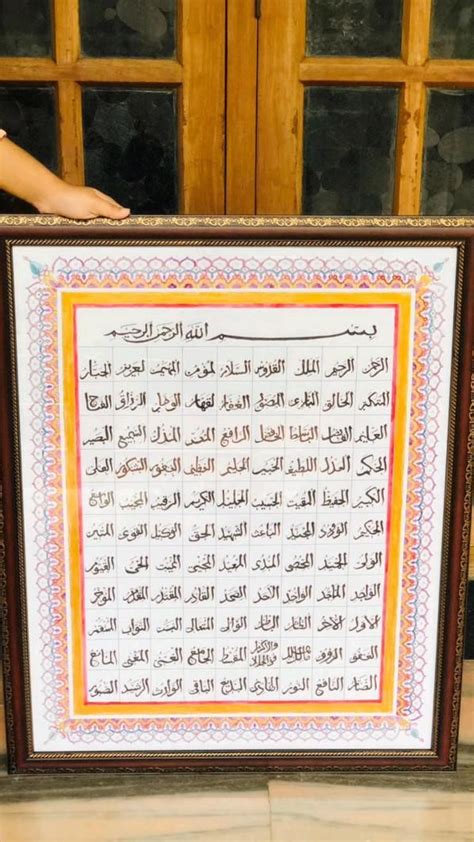 بسم الله الرحمن الرحيم
الرحمن الرحيم الملك القدوس السلام المؤمن المهيمن العزيز الجبار
المتكبر الخالق البارئ المصور الغفار القهار الوهاب الرزاق الفتاح
العليم القابض الباسط الخافض الرافع المعز المذل السميع البصير
الحكم العدل اللطيف الخبير الحليم العظيم الغفور الشكور العلي
الكبير الحفيظ المقيت الحسيب الجليل الكريم الرقيب المجيب الواسع
الحكيم الودود المجيد الباعث الشهيد الحق الوكيل القوي المتين
الولي الحميد المحصي المبدئ المعيد المحيي المميت الحي القيوم
الواجد الماجد الواحد الاحد الصمد القادر المقتدر المقدم المؤخر
الأول الآخر الظاهر الباطن الوالي المتعالي البر التواب المنتقم
العفو الرؤوف مالك الملك ذوالجلال والإكرام المقسط الجامع الغني المغني المانع
الضار النافع النور الهادي البديع الباقي الوارث الرشيد الصبور